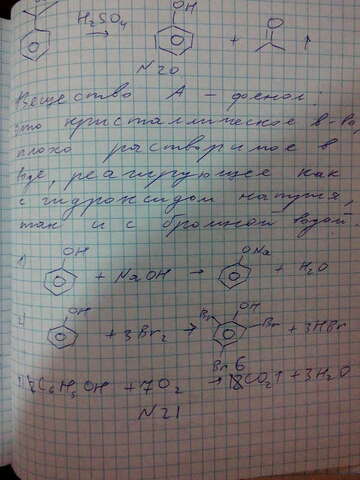 H₂SO₄ → OH + O ↑
N 20
Вещество А – фенол:
это кристаллическое в-во,
плохо растворимое в
воде, реагирующее как
с гидроксидом натрия,
так и с бромной водой.
1) OH + NaOH → ONa + H₂O
2) OH + 3Br₂ → Br OH Br Br + 3HBr
C₆H₅OH + 7O₂ → 6CO₂↑ + 3H₂O
N 21